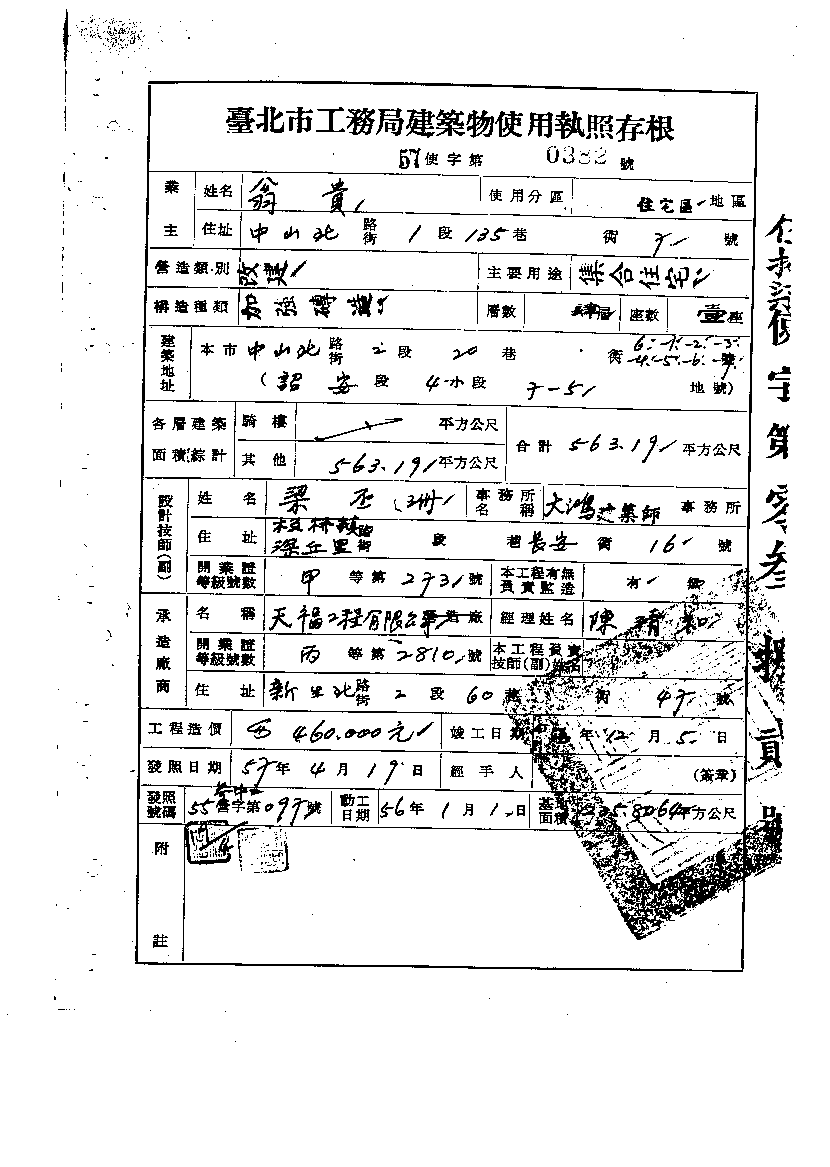 臺北市工務局建築物使用執照存根
57使字第 0382 號
業主 姓名 翁 貴 使用分區 住宅區 地區
住址 中山北 路街 1 段 135 巷 衖 號
營造類別 改建 主要用途 集合住宅
構造種類 加強磚造 層數 肆層 座數 壹座
建築地址 本市 中山北 路街 2 段 20 巷 衖 號
(詔安 段 4小段 地號)
各層建築面積綜計 騎樓 平方公尺 合計 563.19 平方公尺
其他 563.19 平方公尺
設計技師(副) 姓名 梁 丕 事務所名稱 大鴻建築師 事務所
住址 路街 段 巷 長安 街 16 號
開業證等級號數 甲 等第 號 本工程有無負責監造 有
承造廠商 名稱 天福工程有限公 造廠 經理姓名 陳
開業證等級號數 丙 等第 2810 號 本工程負責技師(副)姓名
住址 新生北 路街 2 段 60 巷 衖 號
工程造價 460.000元 竣工日期 年 12 月 5 日
發照日期 57 年 4 月 19 日 經手人 (簽章)
發照號碼 55 營字第 號 動工日期 56 年 1 月 1 日 基地面積 平方公尺
附註